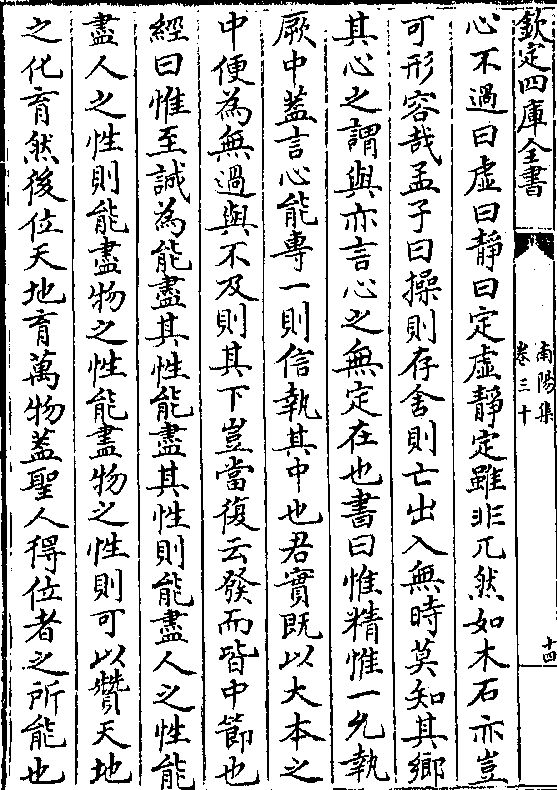 欽定四庫全書
南陽集
卷三十
十四
心不過曰虛曰靜曰定虛靜定雖非兀然如木石亦豈
可形容哉孟子曰操則存舍則亡出入無時莫知其鄉
其心之謂與亦言心之無定在也書曰惟精惟一允執
厥中蓋言心能專一則信執其中也君實既以大本之
中便為無過與不及則其下豈當復云發而皆中節也
經曰惟至誠為能盡其性能盡其性則能盡人之性能
盡人之性則能盡物之性能盡物之性則可以贊天地
之化育然後位天地育萬物蓋聖人得位者之所能也